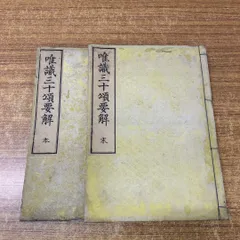 唯識三十頌要解 本
唯識三十頌要解 末